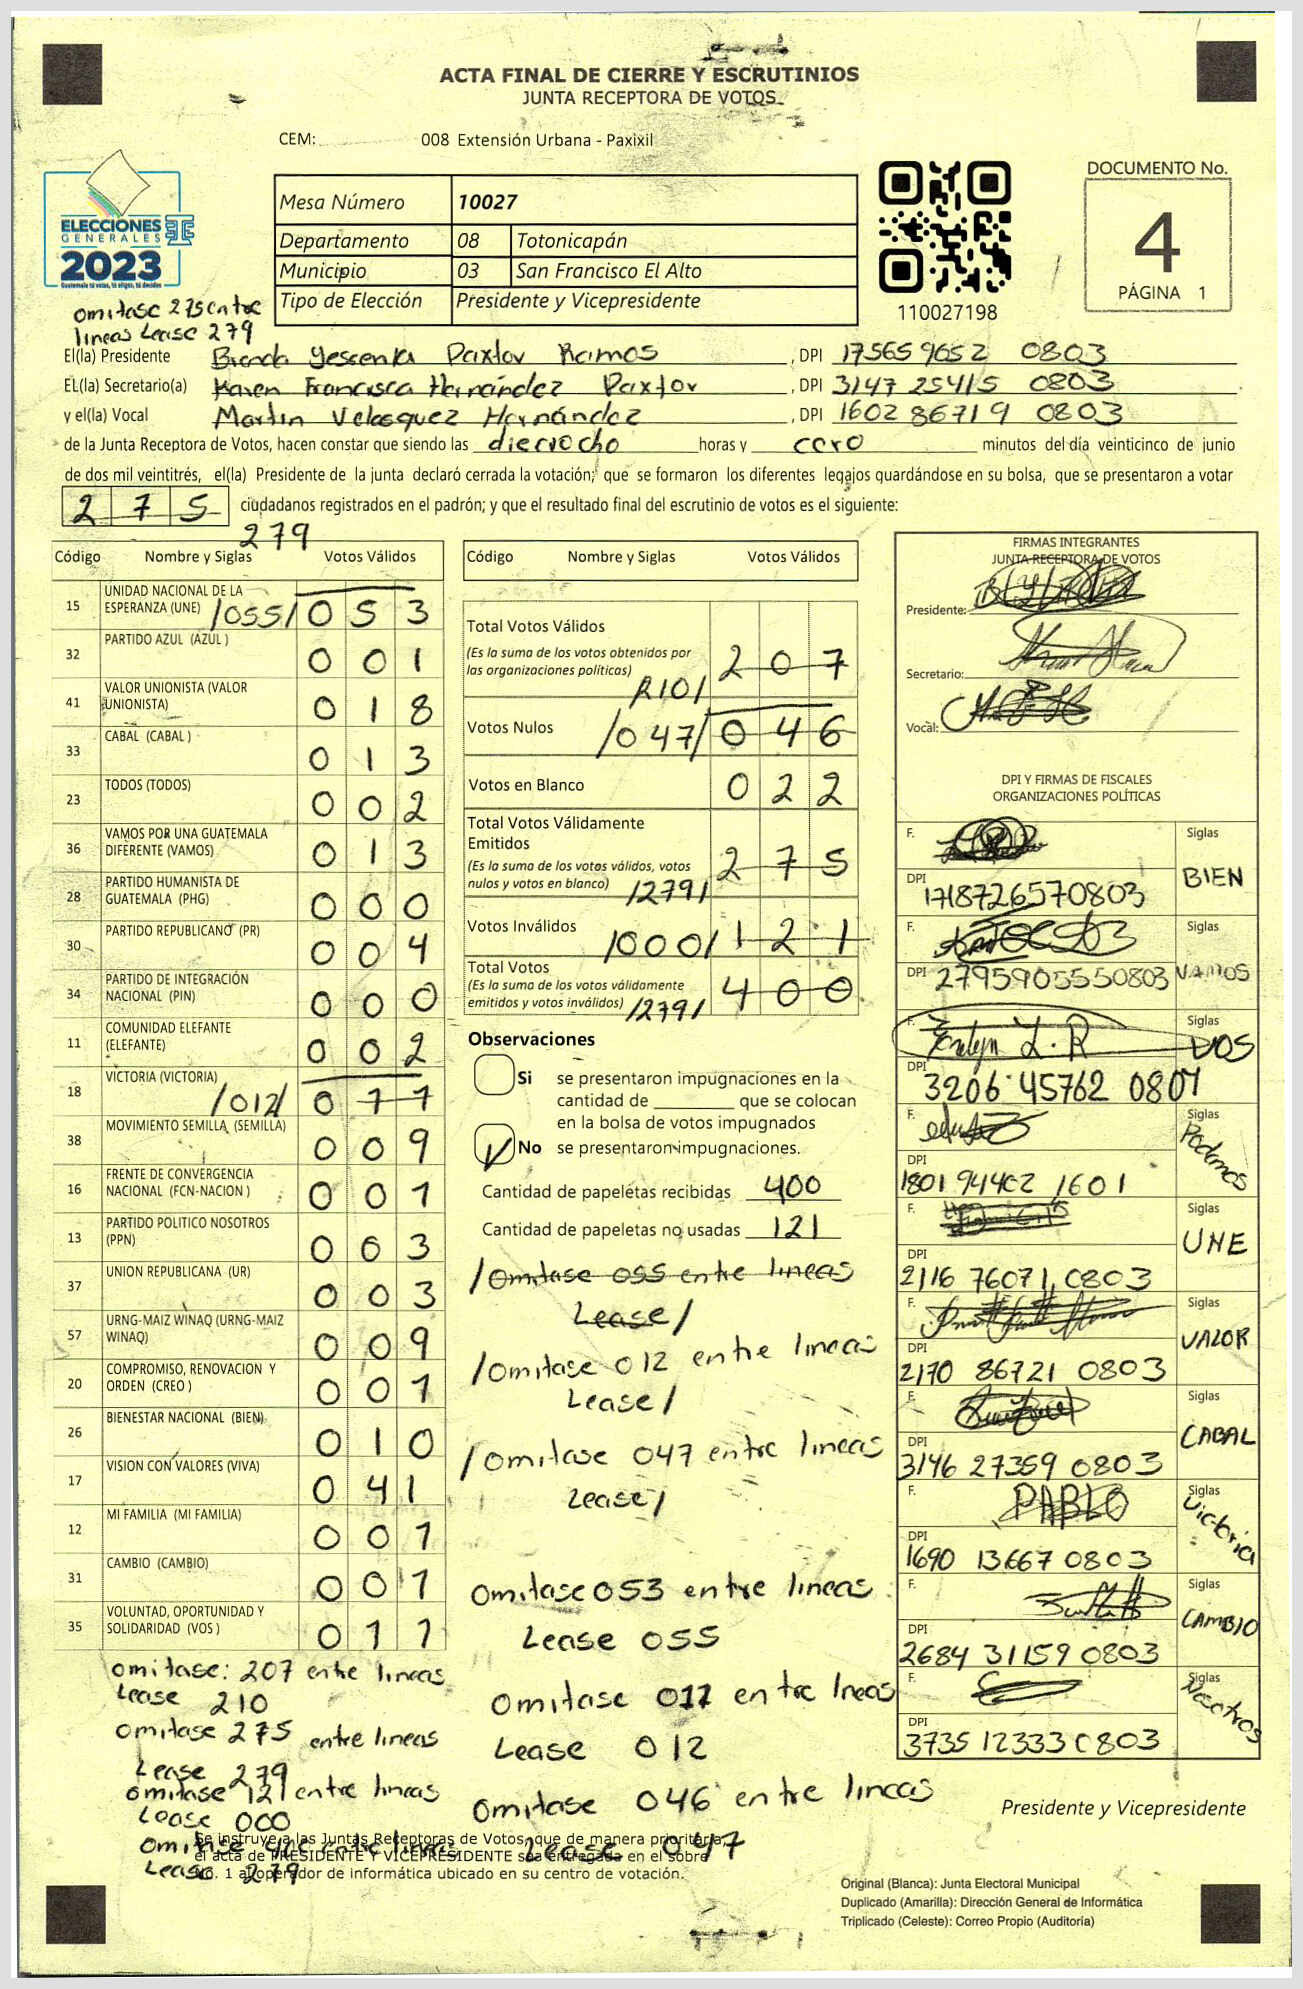 ACTA FINAL DE CIERRE Y ESCRUTINIOS
JUNTA RECEPTORA DE VOTOS
CEM: 008 Extensión Urbana - Paxixil
DOCUMENTO No.
4
PÁGINA 1
ELECCIONES
GENERALES
2023
Guatemala tú votas, tú eliges, tú decides
Mesa Número 10027
Departamento 08 Totonicapán
Municipio 03 San Francisco El Alto
Tipo de Elección Presidente y Vicepresidente
110027198
omitase 275 entre
lineas Lease 279
El(la) Presidente Brenda Yessenia Paxtor Ramos, DPI 175659652 0803
EL(la) Secretario(a) Karen Francisca Hernández Paxtor, DPI 3147 25415 0803
y el(la) Vocal Martin Velasquez Hernández, DPI 1602 86719 0803
de la Junta Receptora de Votos, hacen constar que siendo las dieciocho horas y cero minutos del día veinticinco de junio
de dos mil veintitrés, el(la) Presidente de la junta declaró cerrada la votación; que se formaron los diferentes legajos guardándose en su bolsa, que se presentaron a votar
275 ciudadanos registrados en el padrón; y que el resultado final del escrutinio de votos es el siguiente:
279
Código Nombre y Siglas Votos Válidos
15 UNIDAD NACIONAL DE LA
ESPERANZA (UNE) /055/ 053
32 PARTIDO AZUL (AZUL ) 001
41 VALOR UNIONISTA (VALOR
UNIONISTA) 018
33 CABAL (CABAL ) 013
23 TODOS (TODOS) 002
36 VAMOS POR UNA GUATEMALA
DIFERENTE (VAMOS) 013
28 PARTIDO HUMANISTA DE
GUATEMALA (PHG) 000
30 PARTIDO REPUBLICANO (PR) 004
34 PARTIDO DE INTEGRACIÓN
NACIONAL (PIN) 000
11 COMUNIDAD ELEFANTE
(ELEFANTE) 002
18 VICTORIA (VICTORIA)
/012/ 011
38 MOVIMIENTO SEMILLA (SEMILLA) 009
16 FRENTE DE CONVERGENCIA
NACIONAL (FCN-NACION ) 001
13 PARTIDO POLITICO NOSOTROS
(PPN) 003
37 UNION REPUBLICANA (UR) 003
57 URNG-MAIZ WINAQ (URNG-MAIZ
WINAQ) 009
20 COMPROMISO, RENOVACION Y
ORDEN (CREO ) 001
26 BIENESTAR NACIONAL (BIEN) 010
17 VISION CON VALORES (VIVA) 041
12 MI FAMILIA (MI FAMILIA) 001
31 CAMBIO (CAMBIO) 001
35 VOLUNTAD, OPORTUNIDAD Y
SOLIDARIDAD (VOS ) 011
omitase: 207 entre lineas
Lease 210
omitase 275 entre lineas
Lease 279
omitase 121 entre lineas
Lease 000
Omitase 400 entre lineas
Lease 279
Código Nombre y Siglas Votos Válidos
Total Votos Válidos
(Es la suma de los votos obtenidos por
las organizaciones políticas) 207
/210/
Votos Nulos /047/ 046
Votos en Blanco 022
Total Votos Válidamente
Emitidos
(Es la suma de los votos válidos, votos
nulos y votos en blanco) /279/ 275
Votos Inválidos /000/ 121
Total Votos
(Es la suma de los votos válidamente
emitidos y votos inválidos) /279/ 400
Observaciones
Si se presentaron impugnaciones en la
cantidad de que se colocan
en la bolsa de votos impugnados
No se presentaron impugnaciones.
Cantidad de papeletas recibidas 400
Cantidad de papeletas no usadas 121
/Omitase 055 entre lineas
Lease/
/Omitase 012 entre lineas
Lease/
/Omitase 047 entre lineas
Lease/
Omitase 053 entre lineas
Lease 055
Omitase 011 entre lneas
Lease 012
Omitase 046 entre lineas
Lease 047
FIRMAS INTEGRANTES
JUNTA RECEPTORA DE VOTOS
Presidente:
Secretario:
Vocal:
DPI Y FIRMAS DE FISCALES
ORGANIZACIONES POLÍTICAS
F. Siglas
BIEN
DPI
1718726570803
F. Siglas
DPI 2795905550803 VAMOS
F. Evelyn L.R Siglas
VOS
DPI
3206 45762 0807
F. Siglas
Podemos
DPI
1801 94402 1601
F. Siglas
UNE
DPI
2116 76071 0803
F. Siglas
VALOR
DPI
2170 86721 0803
F. Siglas
CABAL
DPI
3146 27359 0803
F. PABLO Siglas
Victoria
DPI
1690 13667 0803
F. Siglas
CAMBIO
DPI
2684 31159 0803
F. Siglas
Nosotros
DPI
3735 12333 0803
Presidente y Vicepresidente
Se instruye a las Juntas Receptoras de Votos, que de manera prioritaria,
el acta de PRESIDENTE Y VICEPRESIDENTE sea entregada en el sobre
No. 1 al operador de informática ubicado en su centro de votación.
Original (Blanca): Junta Electoral Municipal
Duplicado (Amarilla): Dirección General de Informática
Triplicado (Celeste): Correo Propio (Auditoría)